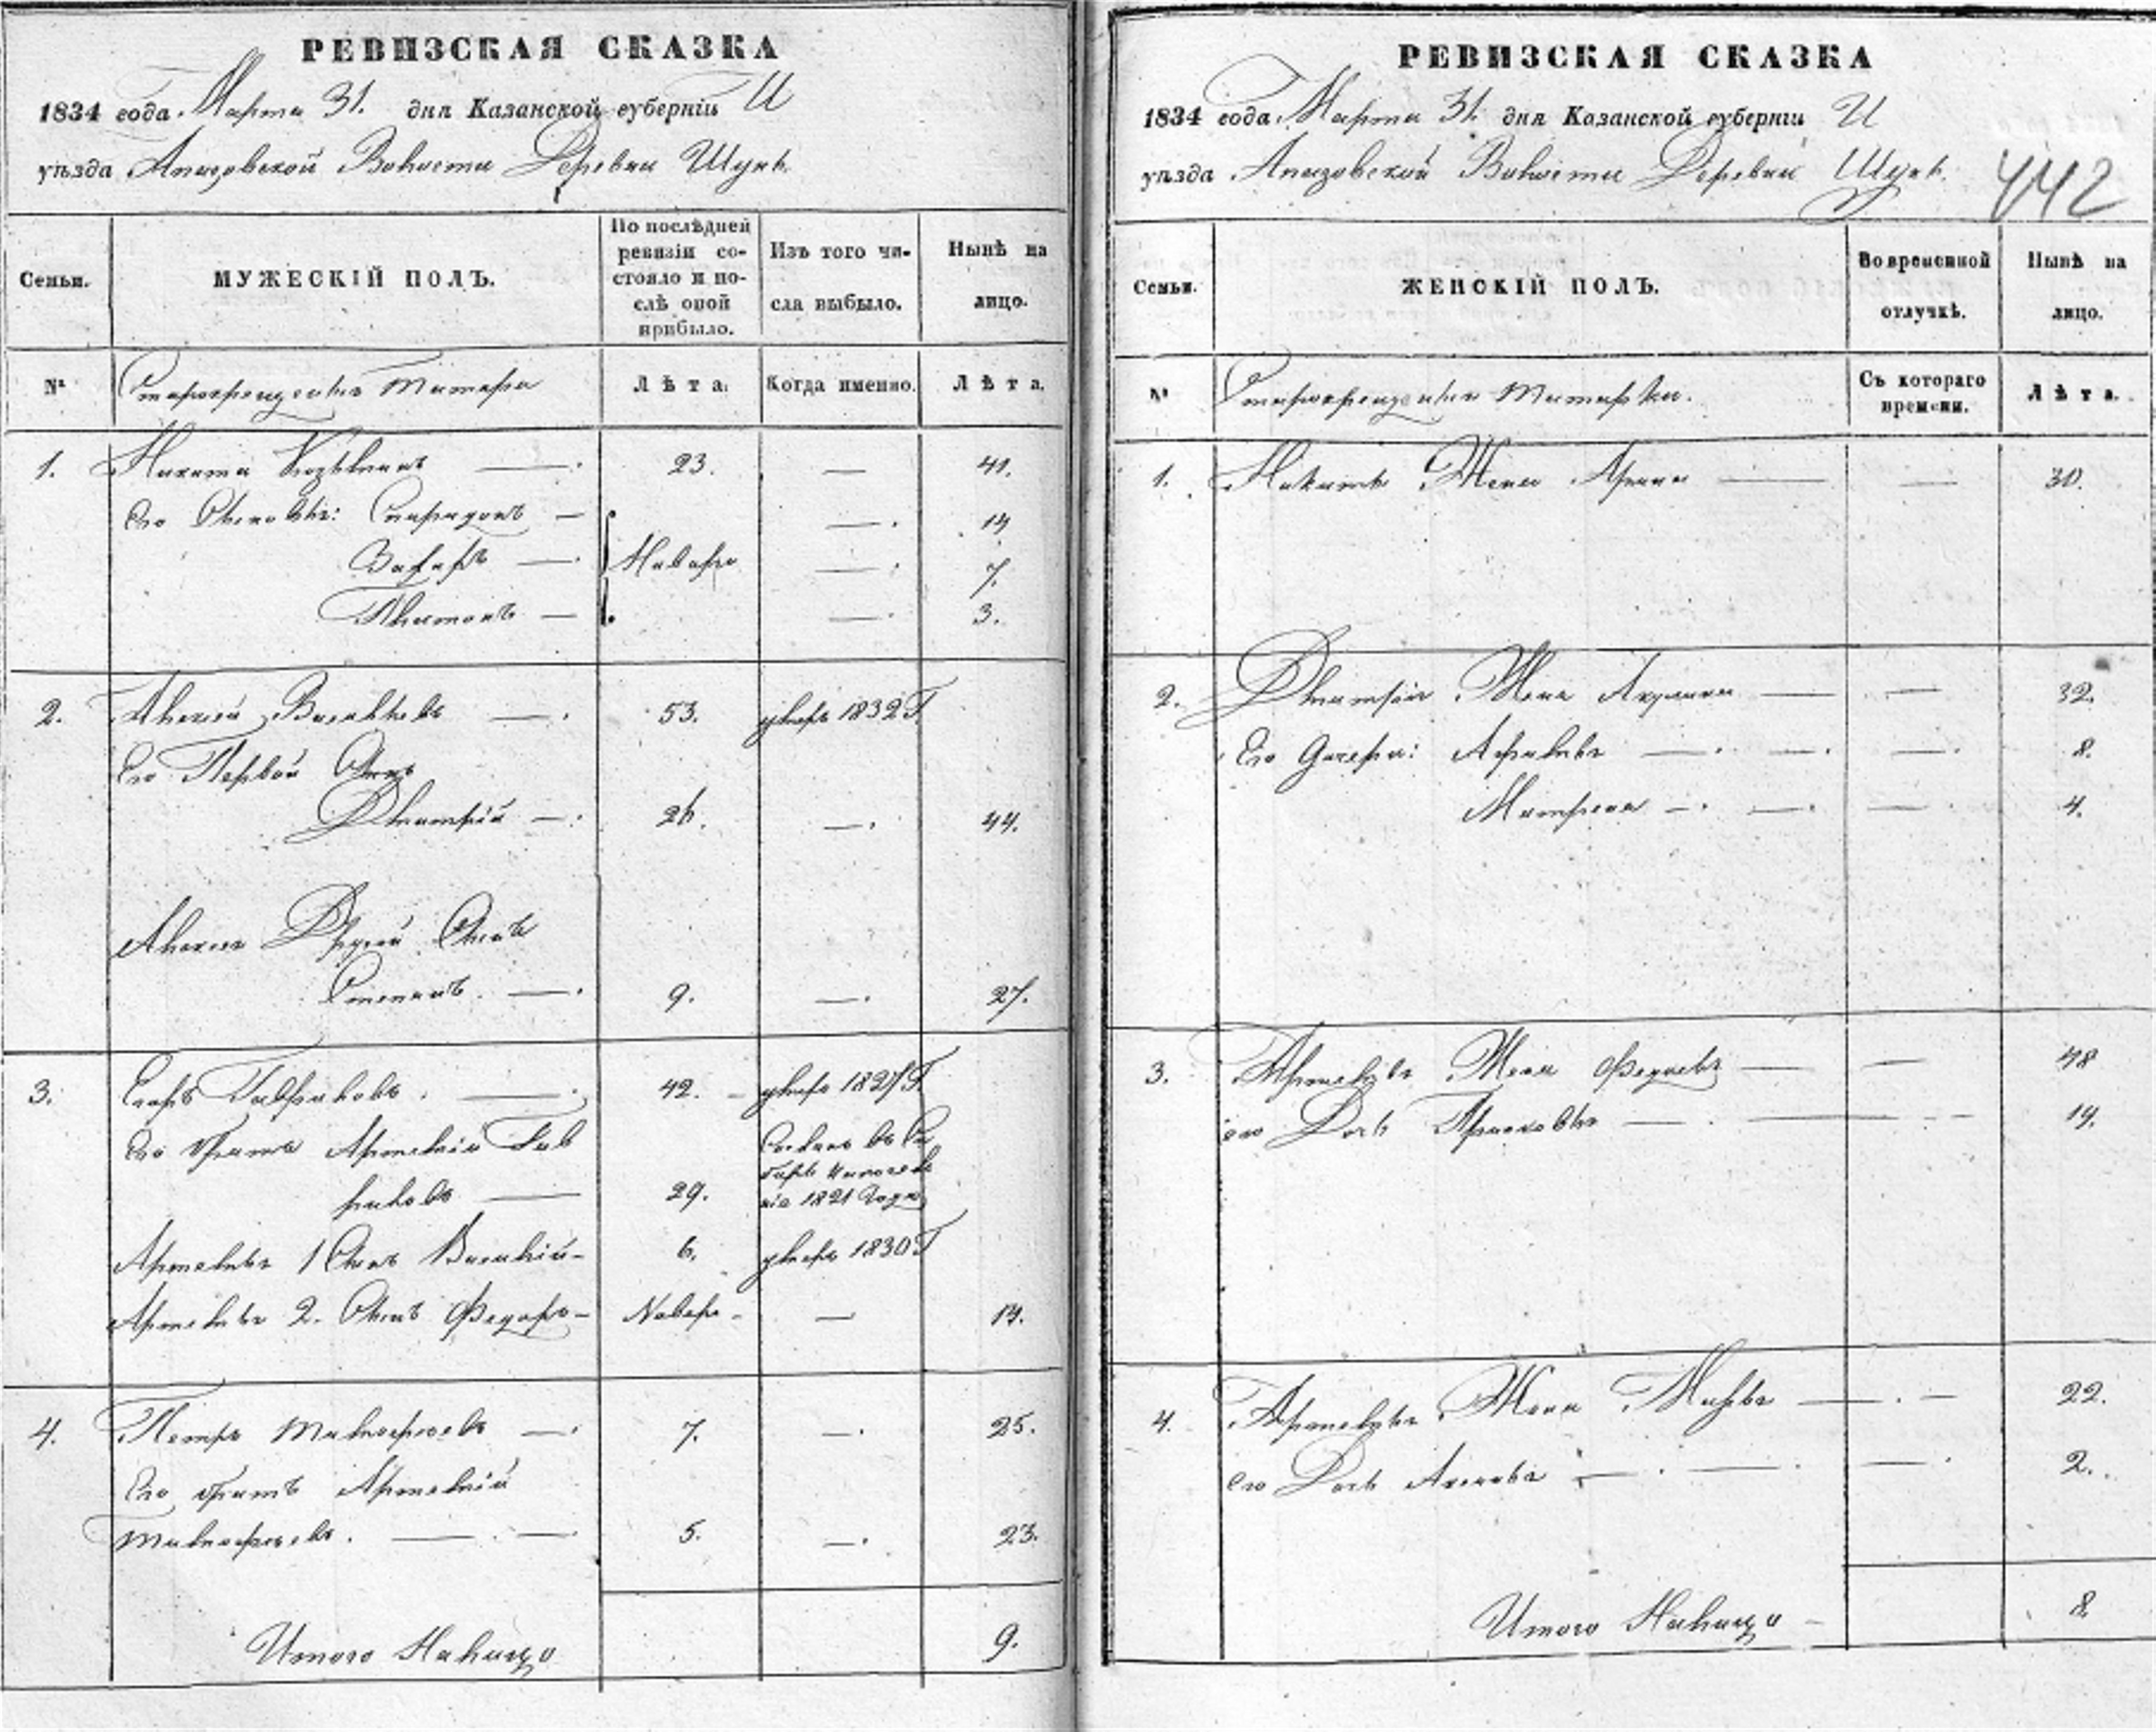 РЕВИЗСКАЯ СКАЗКА
1834 года Марта 31. дня Казанской губерніи И
уѣзда Апазовской Волости Деревни Шунь
Семьи. МУЖЕСКІЙ ПОЛЪ. По послѣдней ревизіи состояло и послѣ оной прибыло. Изъ того числа выбыло. Нынѣ на лицо.
№ Старокрещеные татары Лѣта. Когда именно. Лѣта.
1. Никита 23. — 41.
Его Сыновья: Спиридонъ — — 14
Захаръ — Новоро — 7.
Платонъ — — 3.
2. Алексей Васильевъ — 53. умеръ 1832 Г
Его Первой Сынъ
Дмитрій — 26. — 44.
Алексея Другой Сынъ
Степанъ — 9. — 27.
3. Егоръ Гавриловъ — 42. умеръ 1827 Г
Его братъ Артемій Гав
риловъ — 29. Сосланъ въ Си
1821 Года
Артемья 1 Сынъ Василий — 6. умеръ 1830 Г
Артемья 2. Сынъ Федоръ — Новоро — — 14.
4. Петръ Тимофеевъ — 7. — 25.
Его братъ Артемій
Тимофеевъ. — 5. — 23.
Итого Налицо 9.
РЕВИЗСКАЯ СКАЗКА
1834 года Марта 31. дня Казанской губерніи И
уѣзда Апазовской Волости Деревни Шунь. 442
Семьи. ЖЕНСКІЙ ПОЛЪ. Во временной отлучкѣ. Нынѣ на лицо.
№ Старокрещеные татарки. Съ котораго времени. Лѣта.
1. Никиты Жена Арина — — 30.
2. Дмитрія Жена Акулина — — 32.
Его дочери: — — 8.
Матрена — — 4.
3. Артемья Жена Федосья — — 48
его Дочь Прасковья — — 19.
4. Артемья Жена Марья — — 22.
его Дочь — — 2.
Итого Налицо — 8